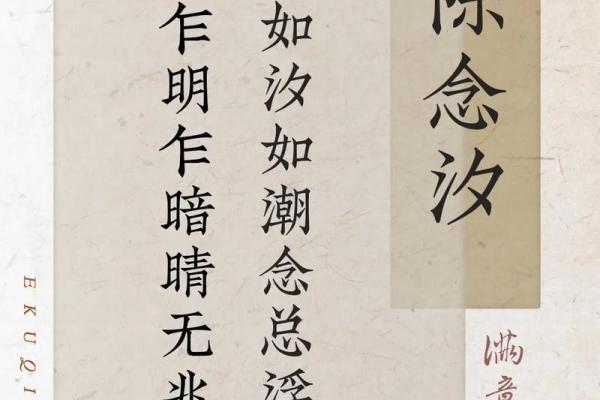 陈念汐
如汐如潮念总浮
乍明乍暗晴无兆
满意
EKUQI